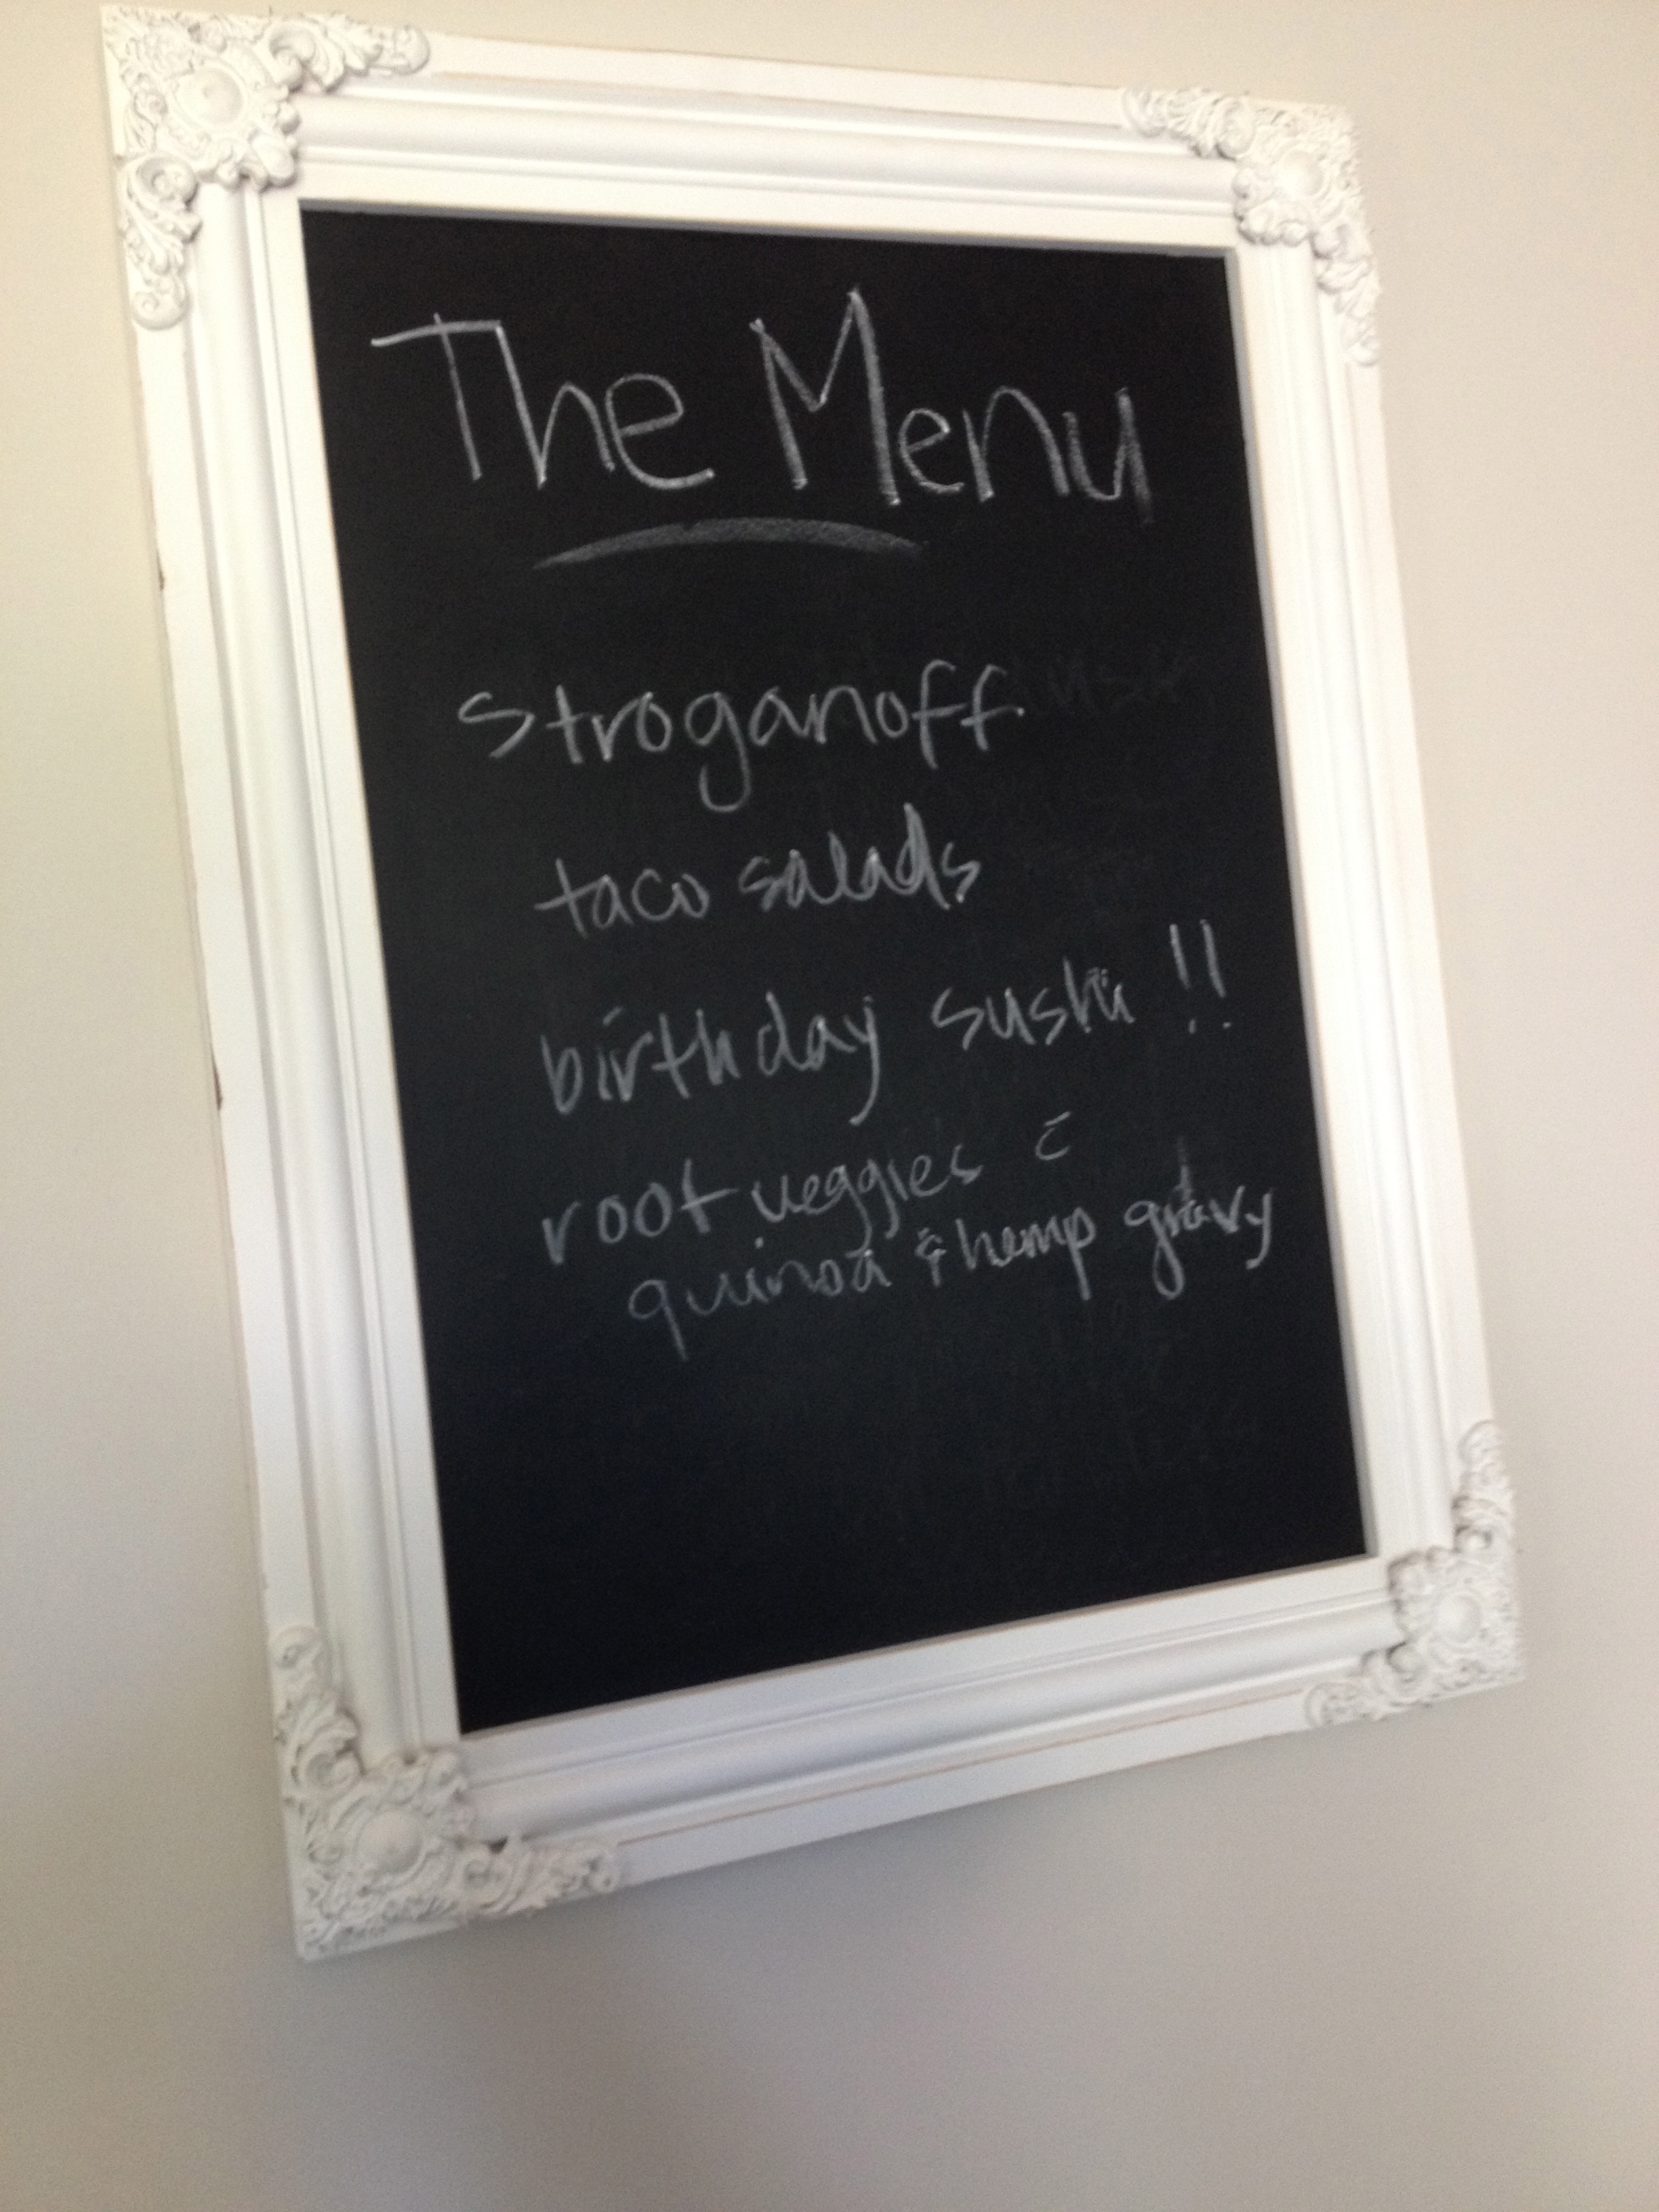 The Menu
stroganoff
taco salads
birthday sushi !!
root veggies c̄
quinoa & hemp gravy